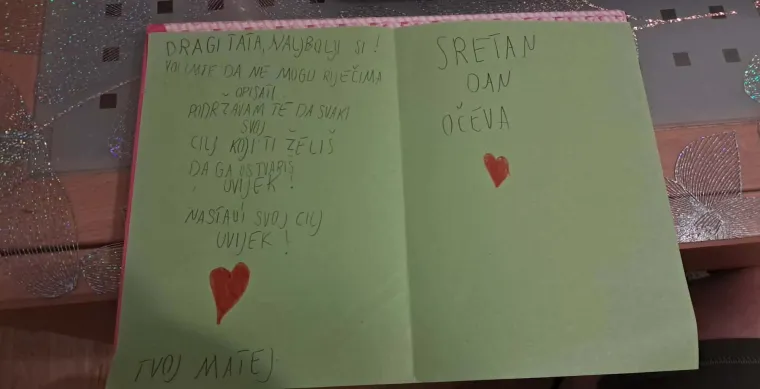 DRAGI TATA, NAJBOLJI SI!
VOLIM TE DA NE MOGU RIJEČIMA
OPISATI
PODRŽAVAM TE DA SVAKI
SVOJ
CILJ KOJI TI ŽELIŠ
DA GA OSTVARIŠ
UVIJEK!
NASTAVI SVOJ CILJ
UVIJEK!
TVOJ MATEJ
SRETAN
DAN
OČEVA